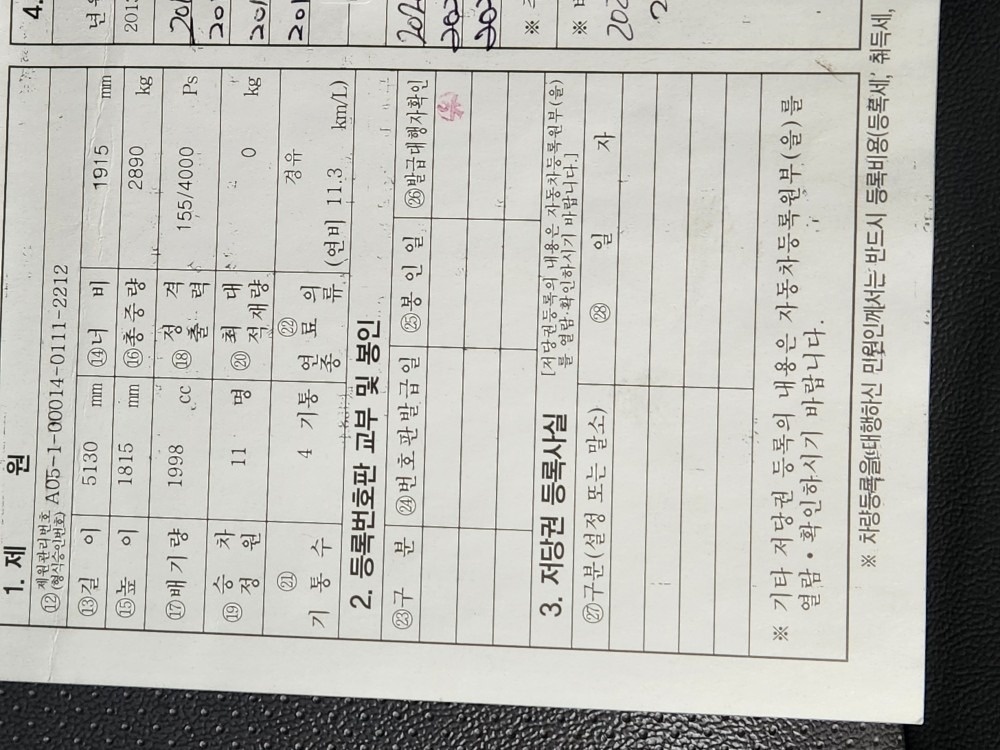 1. 제 원
⑫ 제원관리번호 (형식승인번호) A05-1-00014-0111-2212
⑬길 이 5130 mm ⑭너 비 1915 mm
⑮높 이 1815 mm ⑯총중량 2890 kg
⑰배기량 1998 cc ⑱ 정격출력 155/4000 Ps
⑲ 승차정원 11 명 ⑳ 최대적재량 0 kg
㉑ 기통수 4 기통 ㉒ 연료의종류 경유 (연비 11.3 km/L)
2. 등록번호판 교부 및 봉인
㉓구 분 ㉔번호판발급일 ㉕봉 인 일 ㉖발급대행자확인
3. 저당권 등록사실 [저당권등록의 내용은 자동차등록원부(을)
를 열람·확인하시기 바랍니다.]
㉗구분(설정 또는 말소) ㉘ 일 자
※ 기타 저당권 등록의 내용은 자동차등록원부(을)를
열람·확인하시기 바랍니다.
※ 차량등록을 대행하신 민원인께서는 반드시 등록비용(등록세, 취득세,
4.
2013